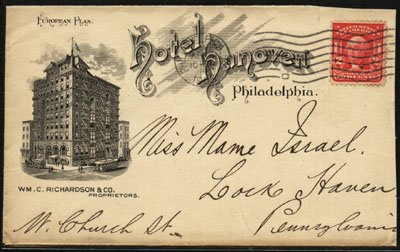 European Plan.
Hotel Hanover
Philadelphia.
Miss Mame Israel.
Lock Haven
WM. C. RICHARDSON & CO.
PROPRIETORS.
W. Church St.
Pennsylvania